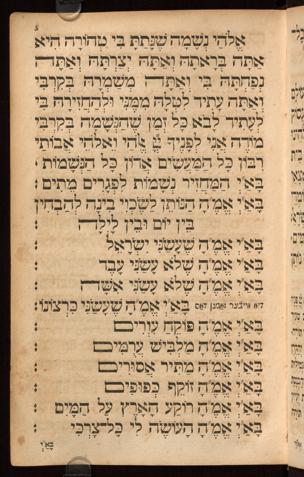 אֱלֹהַי נְשָׁמָה שֶׁנָּתַתָּ בִּי טְהוֹרָה הִיא
אַתָּה בְרָאתָהּ וְאַתָּה יְצַרְתָּהּ וְאַתָּה
נְפַחְתָּהּ בִּי וְאַתָּה מְשַׁמְּרָהּ בְּקִרְבִּי
וְאַתָּה עָתִיד לִטְּלָהּ מִמֶּנִּי וּלְהַחֲזִירָהּ בִּי
לְעָתִיד לָבֹא כָּל זְמַן שֶׁהַנְּשָׁמָה בְּקִרְבִּי
מוֹדֶה אֲנִי לְפָנֶיךָ יְיָ אֱלֹהַי וֵאלֹהֵי אֲבוֹתַי
רִבּוֹן כָּל הַמַּעֲשִׂים אֲדוֹן כָּל הַנְּשָׁמוֹת
בָּאִ״י הַמַּחֲזִיר נְשָׁמוֹת לִפְגָרִים מֵתִים
בָּאִ״י אֱמֶ״הָ הַנּוֹתֵן לַשֶּׂכְוִי בִינָה לְהַבְחִין
בֵּין יוֹם וּבֵין לָיְלָה
בָּאִ״י אֱמֶ״הָ שֶׁעָשַׂנִי יִשְׂרָאֵל
בָּאִ״י אֱמֶ״הָ שֶׁלֹּא עָשַׂנִי עָבֶד
בָּאִ״י אֱמֶ״הָ שֶׁלֹּא עָשַׂנִי אִשָּׁה
דיא ווייבער זאגין דאס בָּאִ״י אֱמֶ״הָ שֶׁעָשַׂנִי כִּרְצוֹנוֹ
בָּאִ״י אֱמֶ״הָ פּוֹקֵחַ עִוְרִים
בָּאִ״י אֱמֶ״הָ מַלְבִּישׁ עֲרֻמִּים
בָּאִ״י אֱמֶ״הָ מַתִּיר אֲסוּרִים
בָּאִ״י אֱמֶ״הָ זוֹקֵף כְּפוּפִים
בָּאִ״י אֱמֶ״הָ רוֹקַע הָאָרֶץ עַל הַמַּיִם
בָּאִ״י אֱמֶ״הָ הָעוֹשֶׂה לִי כָּל־צָרְכִּי
בָּאִ״י